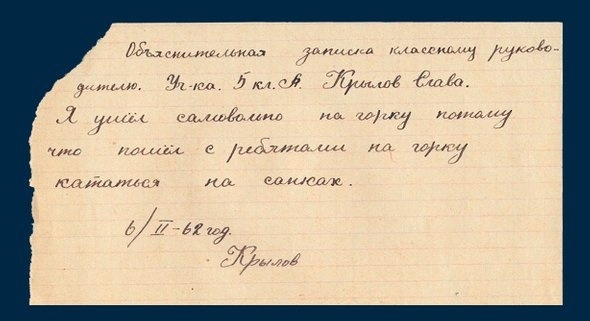 Объяснительная записка классному руково-
дителю. Уч-ка. 5 кл. А. Крылов Слава.
Я ушёл самовольно на горку потому
что пошёл с ребятами на горку
кататься на санках.
6/II-62 год.
Крылов